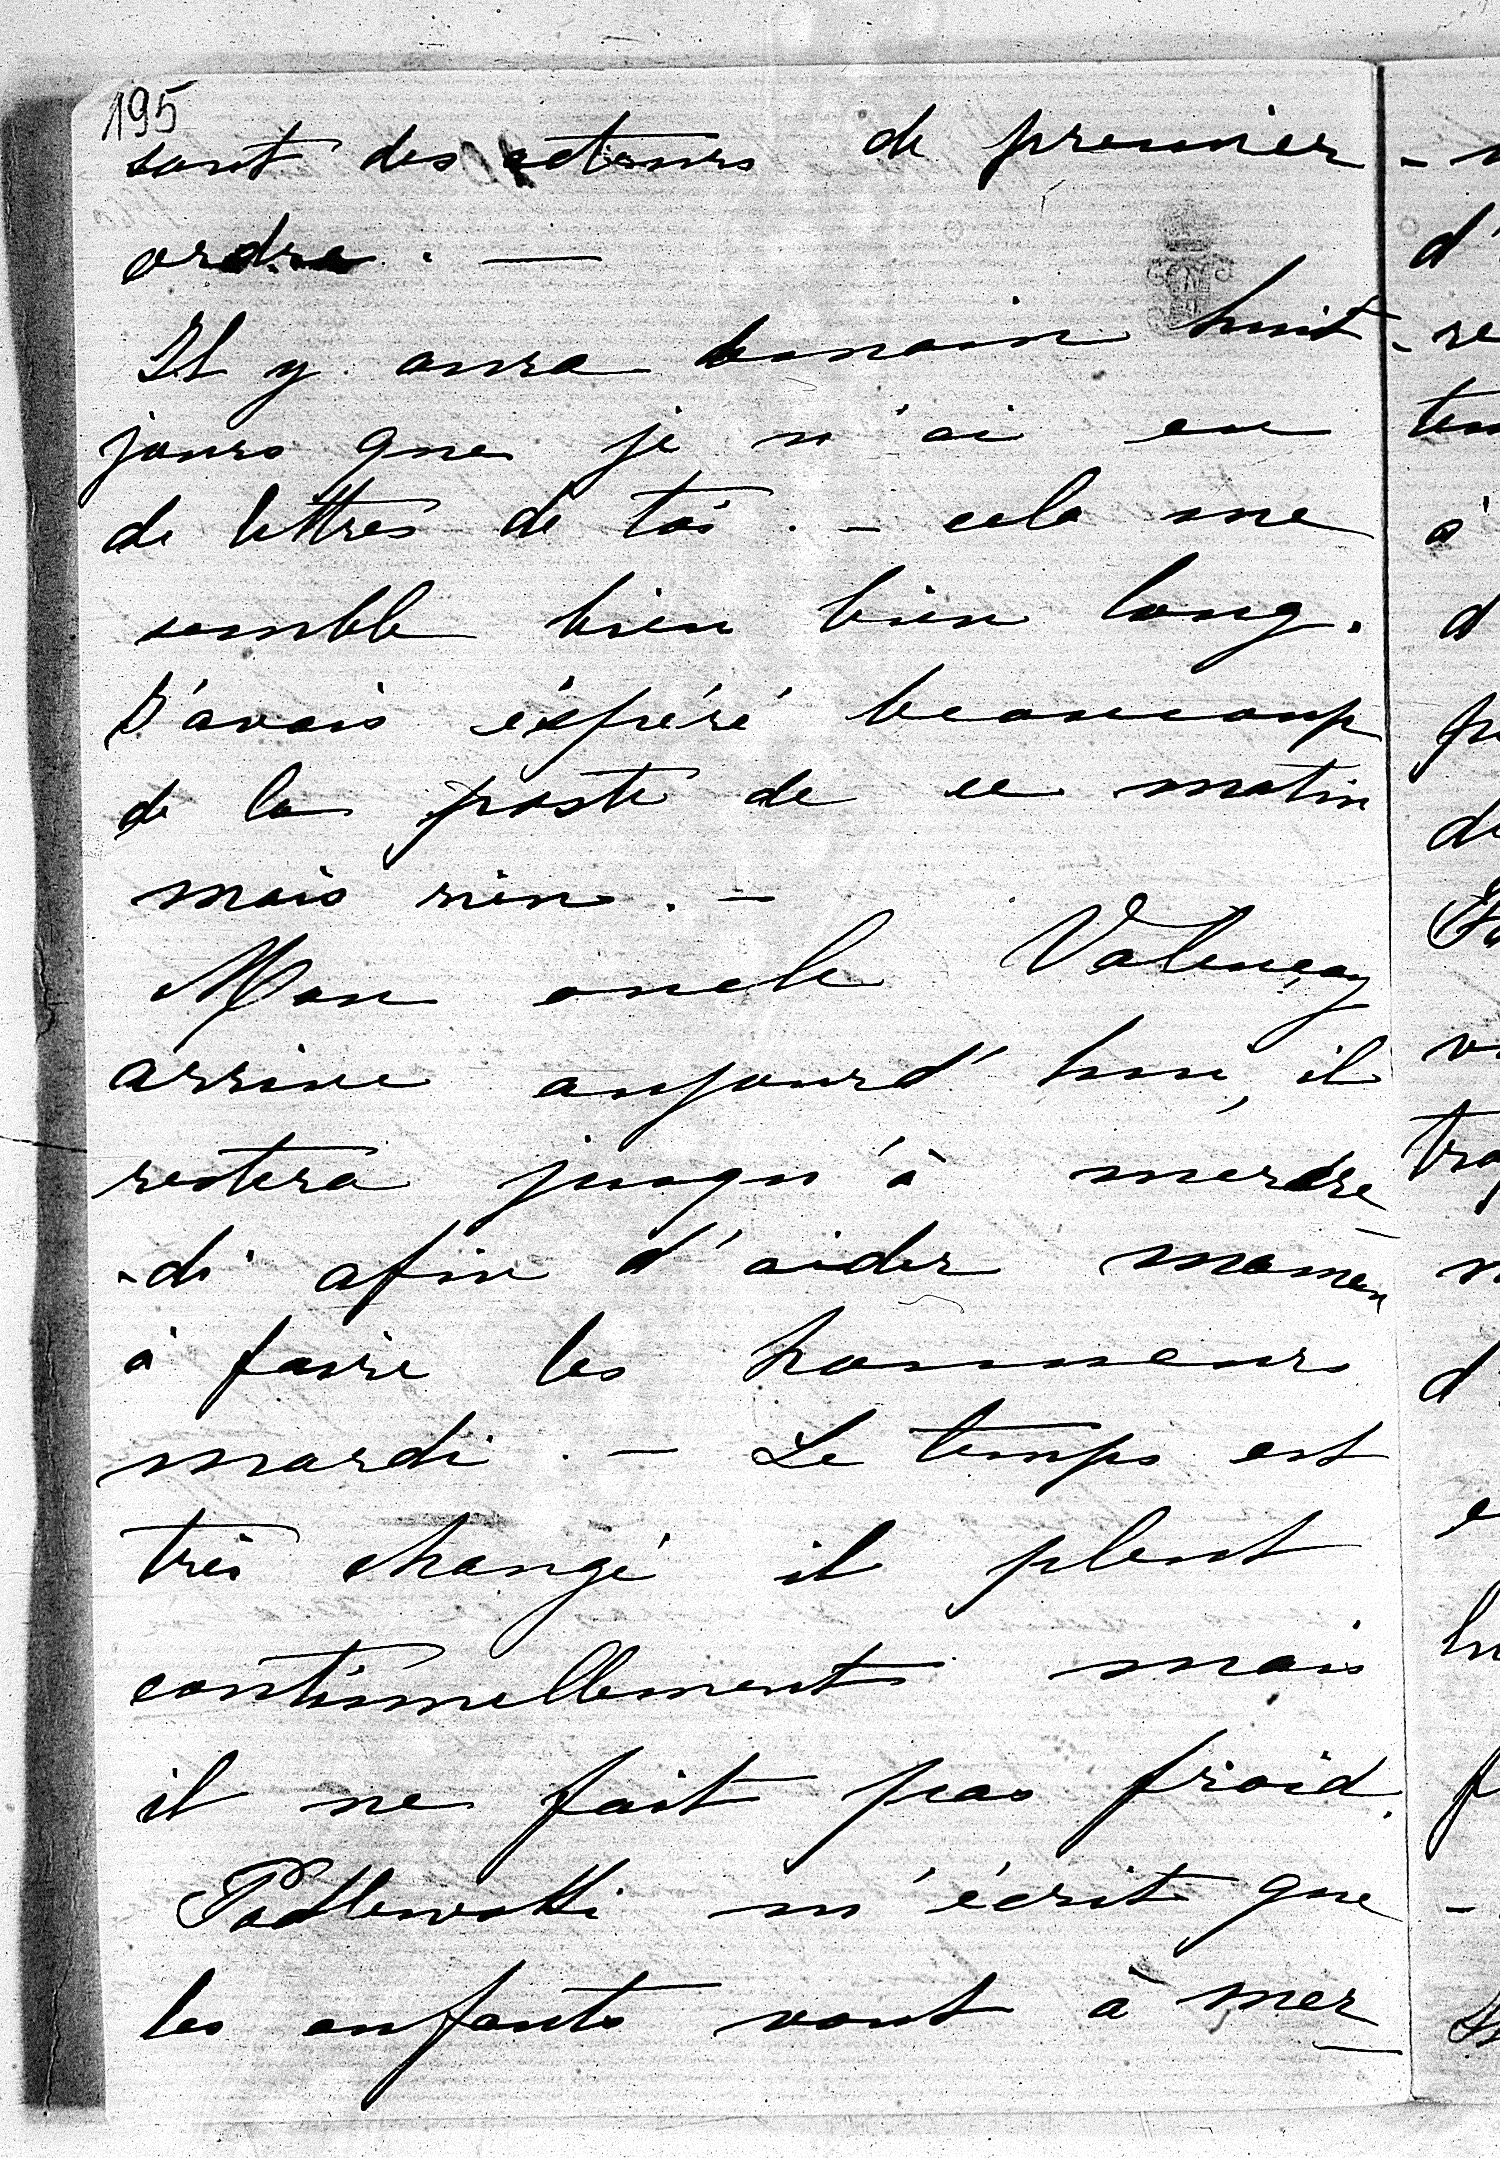 195
sont des acteurs de premier
ordre. —
Il y aura demain huit
jours que je n'ai eue
de lettres de toi. – cela me
semble bien bien long.
J'avais éspéré beaucoup
de la poste de ce matin
mais rien. –
Mon oncle Valençay
arrive aujourd'hui, il
restera jusqu'à mercre
-di afin d'aider maman
à faire les honneurs
mardi. – Le temps est
très changé il pleut
continuellement mais
il ne fait pas froid.
Podlewski m'écrit que
les enfants vont à mer